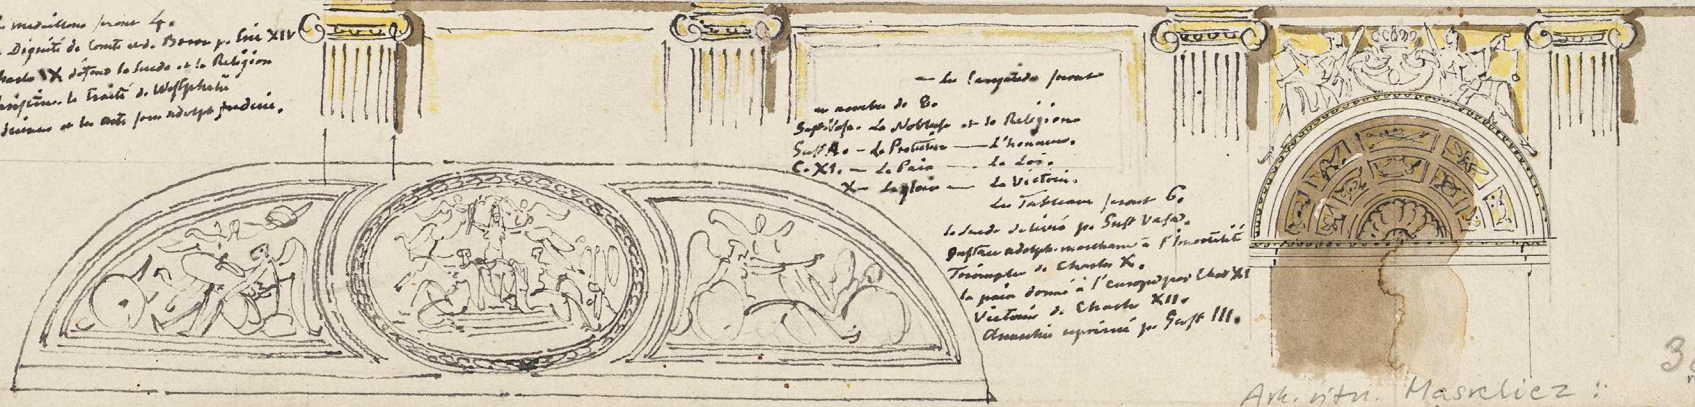 medaillons seront 4.
Dignité de Comte et de Baron p. Eric XIV
Charle IX défend la Suede et la Religion
Christine. le traité de Westphalie
Sciences et les arts sous Adolph Frederic.
— Les seront
au nombre de 8.
Gust. Vasa. La Noblesse et la Religion
Gust A. — La Protection — L'honneur.
C. XI. — La Paix — La Loi.
X — La gloire — La Victoire.
Les Tableaux seront 6.
la Suede délivré par Gust Vasa.
Gustave adolph. marchant à l'immortalité
Triomphe de Charles X.
la paix donné à l'europe par Charl XI
Victoire de Charle XII.
Anarchie reprimé p. Gust III.
Ark. ritn. Masreliez :
3